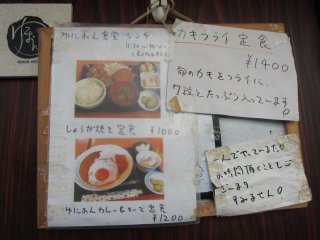 ゆにおん食堂 ランチ
11:30〜14:00
しょうが焼き定食 ¥1000
ゆにおんカレー&チーズ定食
¥1200
カキフライ定食
¥1400
旬のカキをフライに、
7粒とたっぷり入っています
んでやっているため
お時間頂くことも
ございます。
すみません。